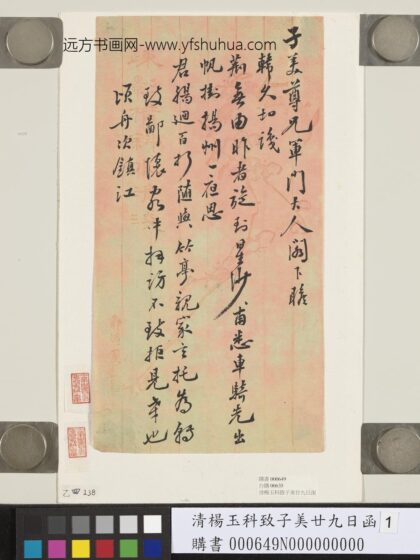 远方书画网-www.yfshuhua.com
子美尊兄軍門大人閣下瞻
韓久切識
荊無由昨者旋到星沙甫悉車騎先出
帆掛揚州一夜思
君腸迴百折隨與竹亭親家言托為轉
致鄙懷 訪不致拒見幸也
頃舟次鎮江
購書 000649
清楊玉科致子美廿九日函
乙四238
清楊玉科致子美廿九日函 1
購書 000649N000000000